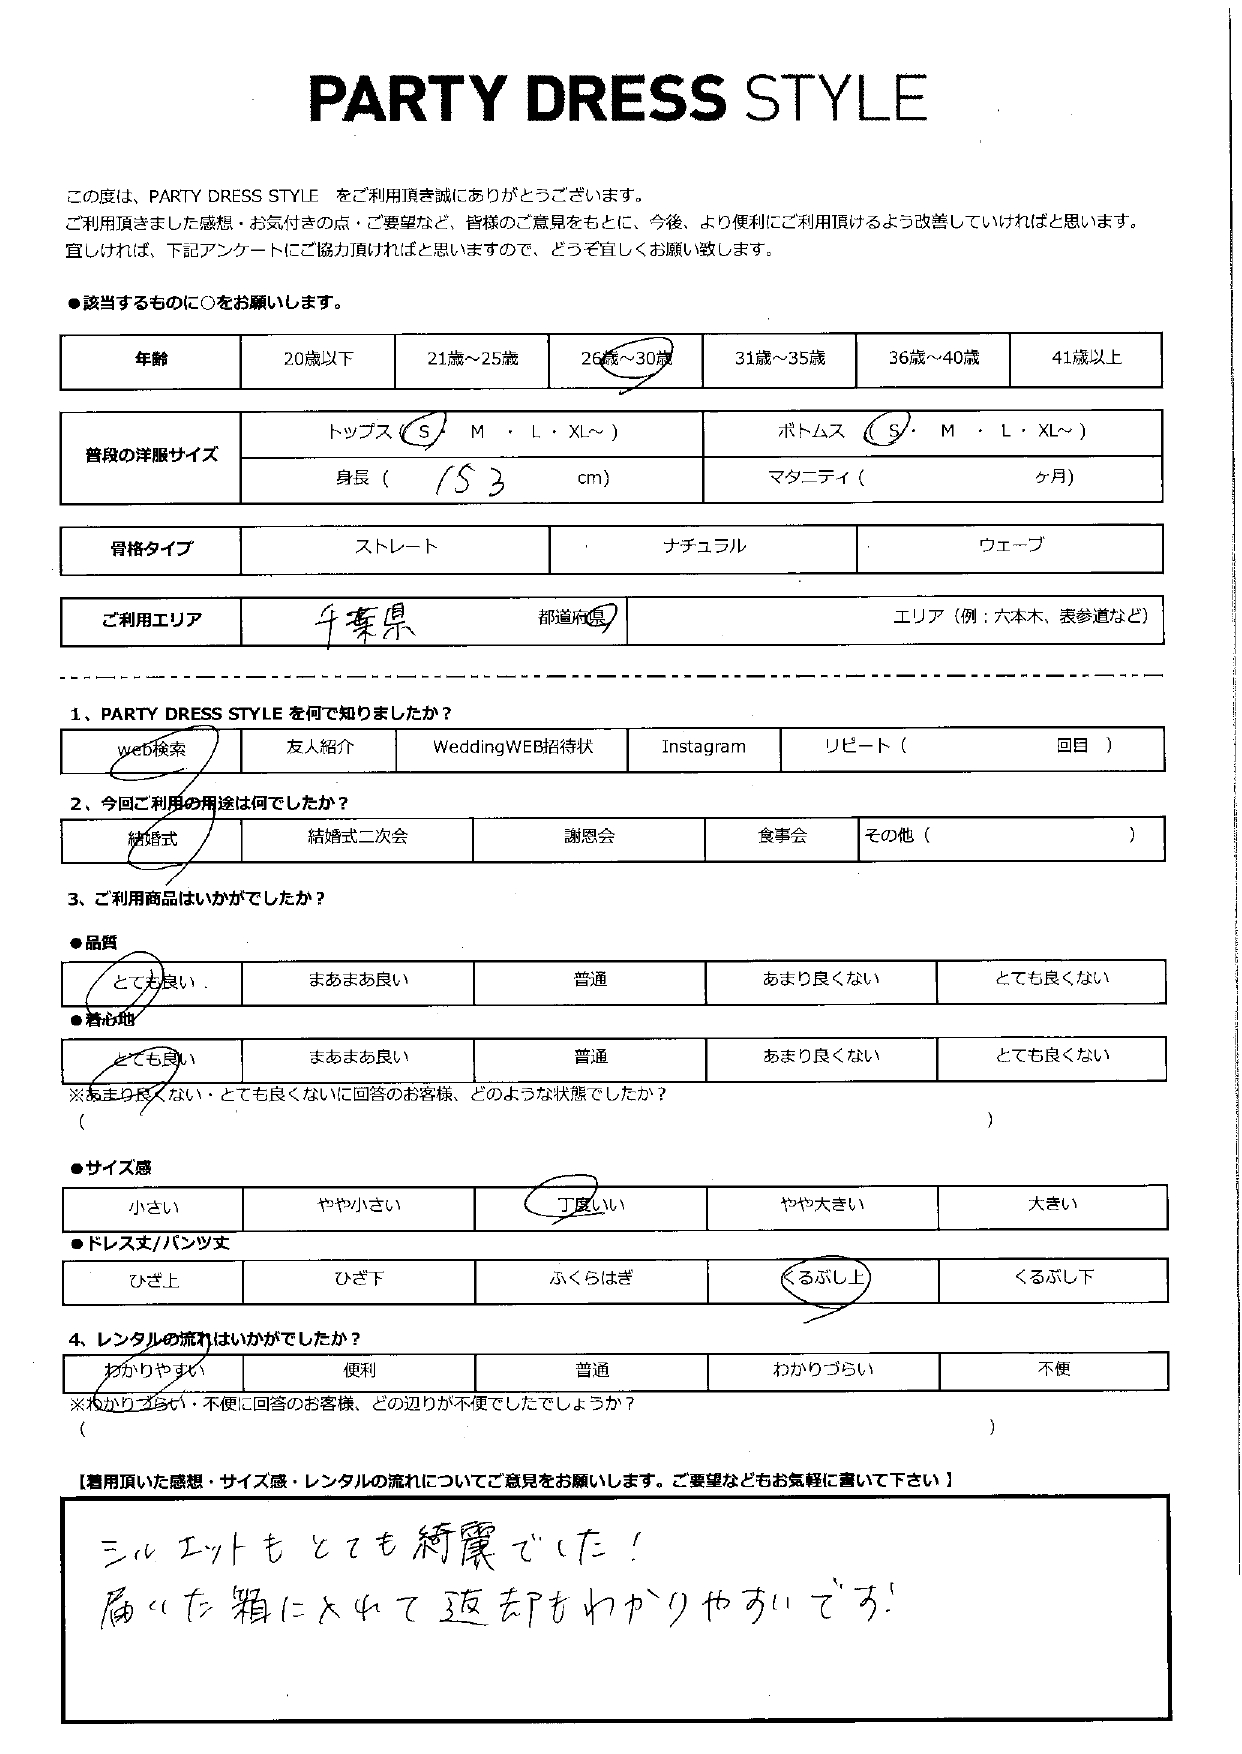 PARTY DRESS STYLE
この度は、PARTY DRESS STYLE をご利用頂き誠にありがとうございます。
ご利用頂きました感想・お気付きの点・ご要望など、皆様のご意見をもとに、今後、より便利にご利用頂けるよう改善していければと思います。
宜しければ、下記アンケートにご協力頂ければと思いますので、どうぞ宜しくお願い致します。
●該当するものに○をお願いします。
年齢 20歳以下 21歳～25歳 26歳～30歳 31歳～35歳 36歳～40歳 41歳以上
普段の洋服サイズ
トップス ( S ・ M ・ L ・ XL～ ) ボトムス ( S ・ M ・ L ・ XL～ )
身長 ( 153 cm) マタニティ ( ヶ月)
骨格タイプ ストレート ナチュラル ウェーブ
ご利用エリア 千葉県 都道府県 エリア（例：六本木、表参道など）
1、PARTY DRESS STYLE を何で知りましたか？
web検索 友人紹介 WeddingWEB招待状 Instagram リピート ( 回目 )
2、今回ご利用の用途は何でしたか？
結婚式 結婚式二次会 謝恩会 食事会 その他 ( )
3、ご利用商品はいかがでしたか？
●品質
とても良い まあまあ良い 普通 あまり良くない とても良くない
●着心地
とても良い まあまあ良い 普通 あまり良くない とても良くない
※あまり良くない・とても良くないに回答のお客様、どのような状態でしたか？
( )
●サイズ感
小さい やや小さい 丁度いい やや大きい 大きい
●ドレス丈/パンツ丈
ひざ上 ひざ下 ふくらはぎ くるぶし上 くるぶし下
4、レンタルの流れはいかがでしたか？
わかりやすい 便利 普通 わかりづらい 不便
※わかりづらい・不便に回答のお客様、どの辺りが不便でしたでしょうか？
( )
【着用頂いた感想・サイズ感・レンタルの流れについてご意見をお願いします。ご要望などもお気軽に書いて下さい 】
シルエットもとても綺麗でした！
届いた箱に入れて返却もわかりやすいです！